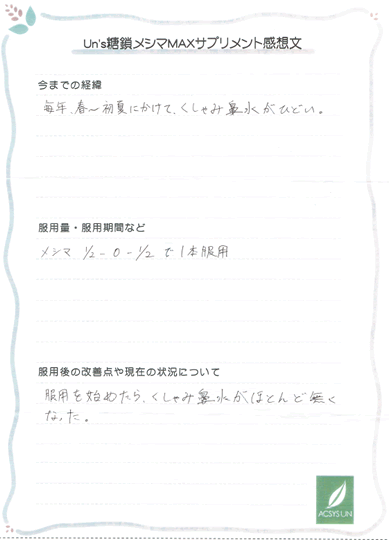 Un's糖鎖メシマMAXサプリメント感想文
今までの経緯
毎年、春〜初夏にかけて、くしゃみ鼻水がひどい。
服用量・服用期間など
メシマ 1/2-0-1/2 で1本服用
服用後の改善点や現在の状況について
服用を始めたら、くしゃみ鼻水がほとんど無く
なった。
ACSYSUN